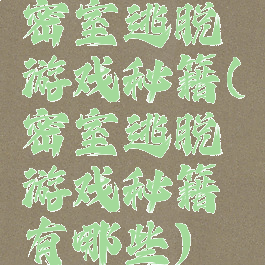 密室逃脱
游戏秘籍(
密室逃脱
游戏秘籍
有哪些)